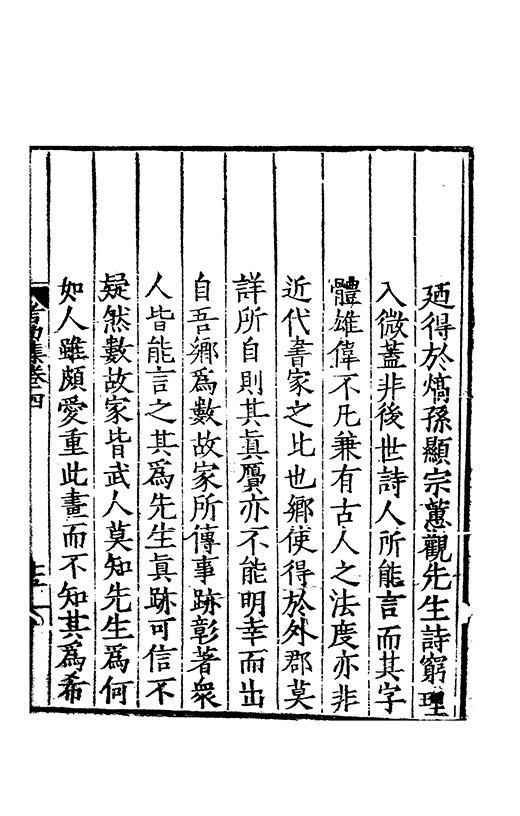 廼得於燆孫顯宗蕙觀先生詩窮理
入微蓋非後世詩人所能言而其字
體雄偉不凡兼有古人之法度亦非
近代書家之比也鄉使得於外郡莫
詳所自則其真贗亦不能明幸而出
自吾鄉為數故家所傳事跡彰著衆
人皆能言之其為先生真跡可信不
疑然數故家皆武人莫知先生為何
如人雖頗愛重此畫而不知其為希
集卷四